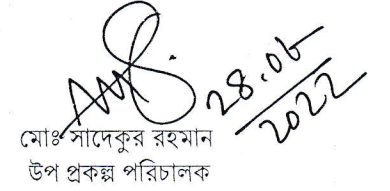 28.06
2022
মোঃ সাদেকুর রহমান
উপ প্রকল্প পরিচালক